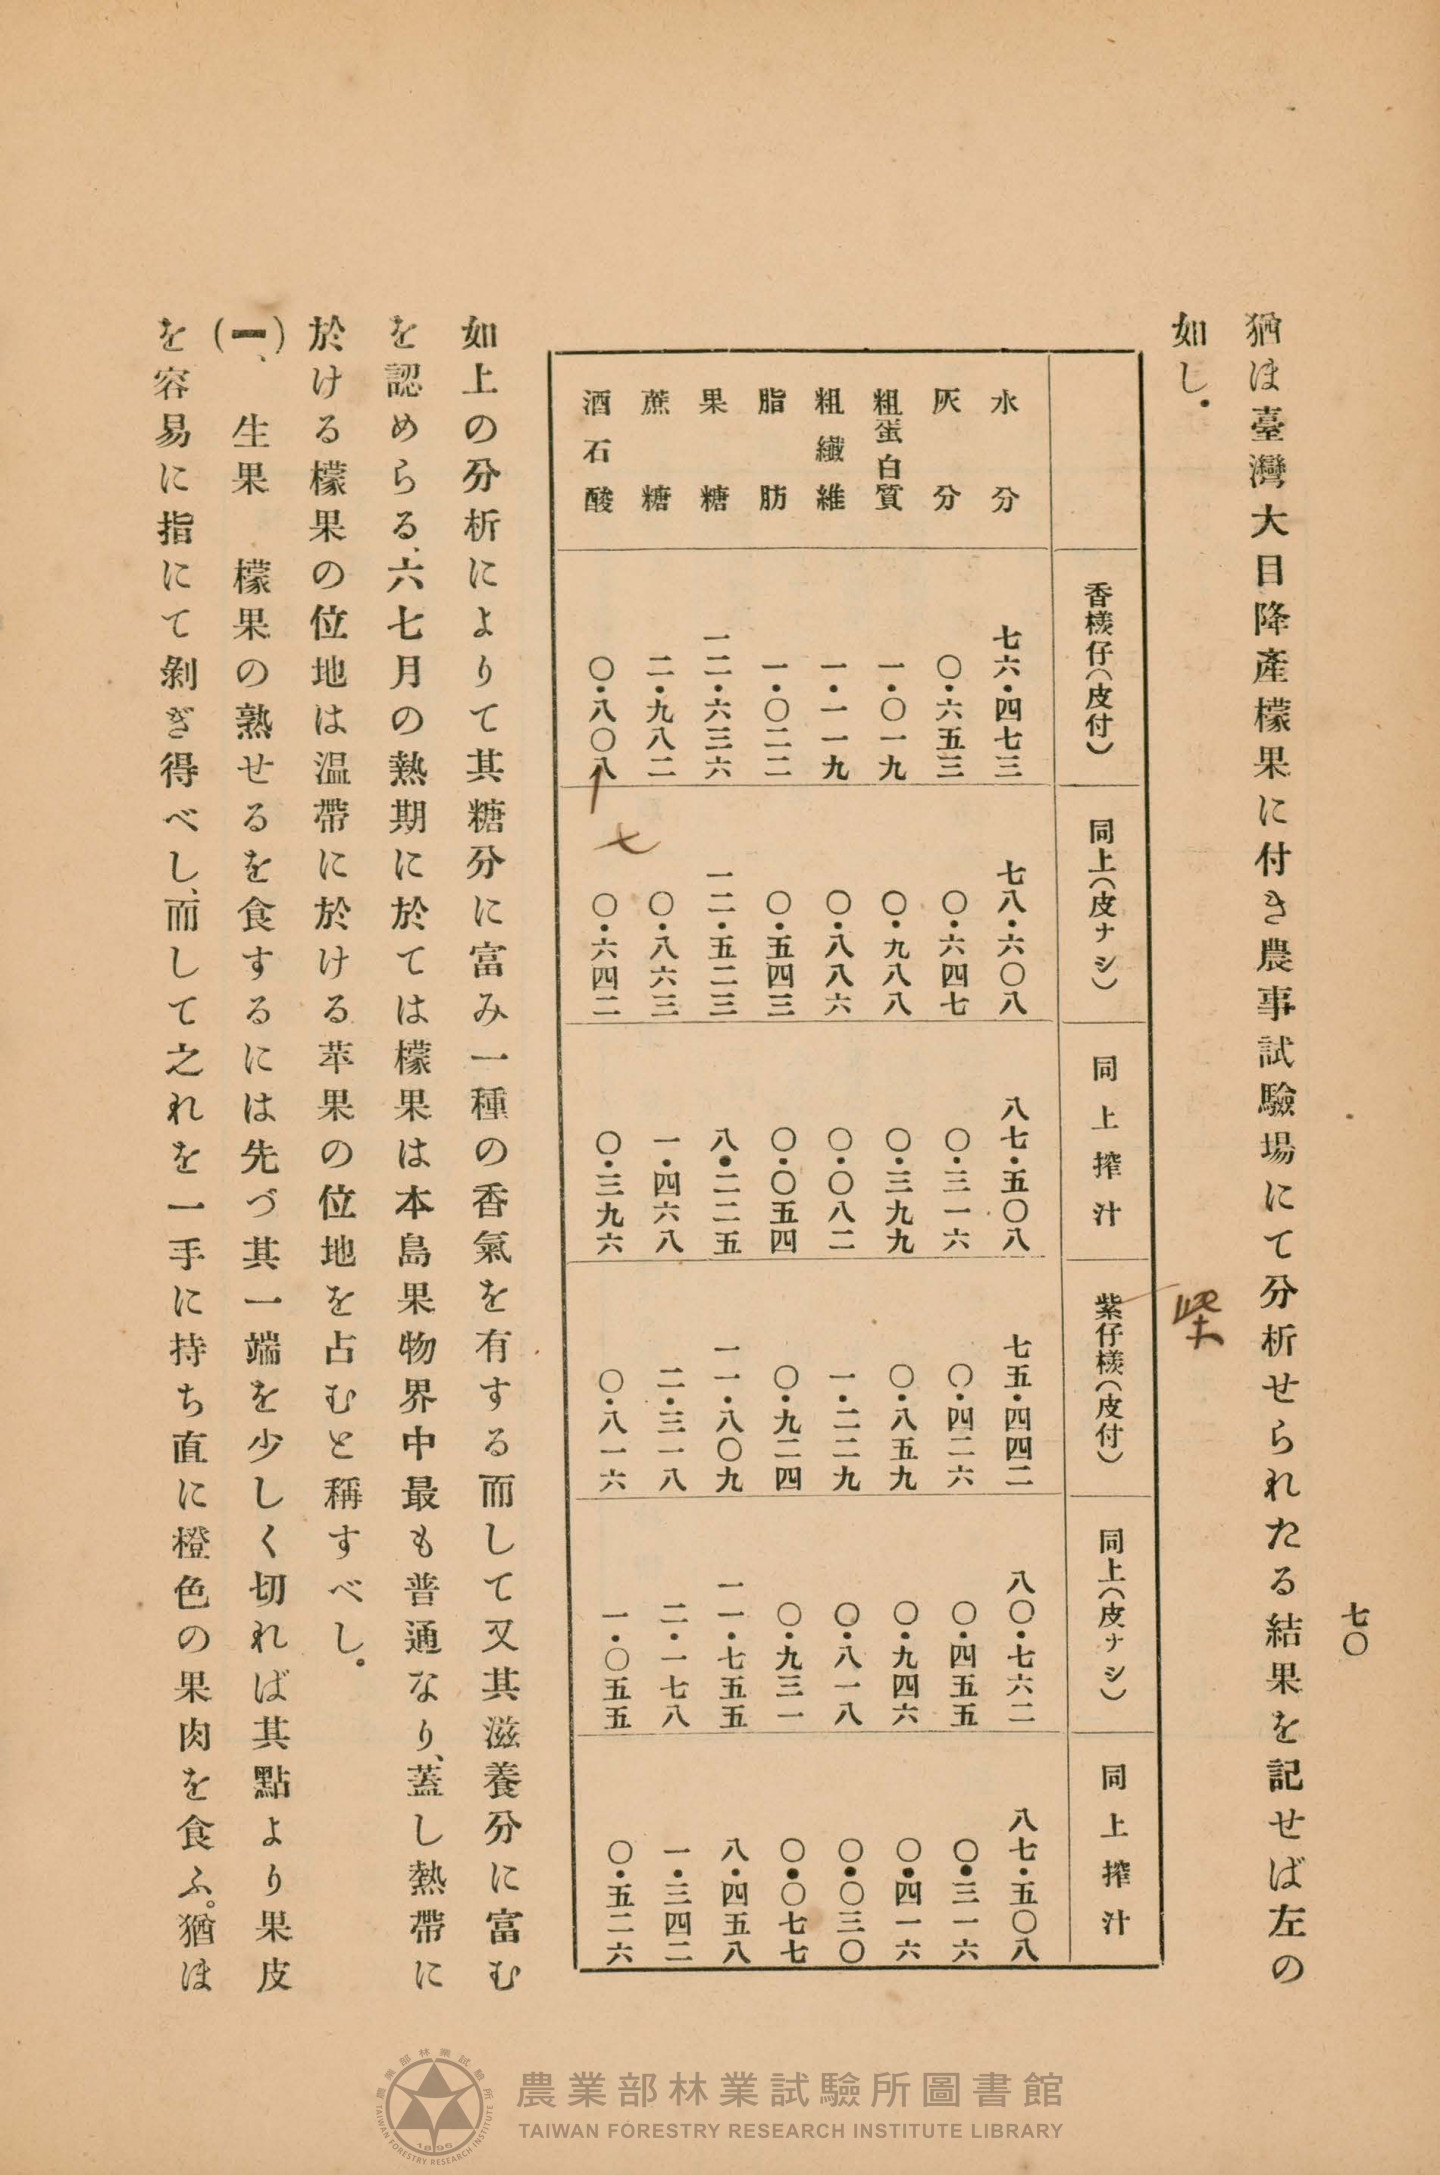 七〇
猶ほ臺灣大目降產檬果に付き農事試驗場にて分析せられたる結果を記せば左の
如し。
香檨仔（皮付） 同上（皮ナシ） 同上搾汁 紫仔檨（皮付） 同上（皮ナシ） 同上搾汁
柴
水分 七六・四七三 七八・六〇八 八七・五〇八 七五・四四二 八〇・七六二 八七・五〇八
灰分 〇・六五三 〇・六四七 〇・三一六 〇・四二六 〇・四五五 〇・三一六
粗蛋白質 一・〇一九 〇・九八八 〇・三九九 〇・八五九 〇・九四六 〇・四一六
粗纖維 一・一一九 〇・八八六 〇・〇八二 一・二二九 〇・八一八 〇・〇三〇
脂肪 一・〇二二 〇・五四三 〇・〇五四 〇・九二四 〇・九三一 〇・〇七七
果糖 一二・六三六 一二・五二三 八・二二五 一一・八〇九 一一・七五五 八・四五八
蔗糖 二・九八二 〇・八六三 一・四六八 二・三一八 二・一七八 一・三四二
酒石酸 〇・八〇八 〇・六四二 〇・三九六 〇・八一六 一・〇五五 〇・五二六
七
如上の分析によりて其糖分に富み一種の香氣を有する而して又其滋養分に富む
を認めらる、六七月の熱期に於ては檬果は本島果物界中最も普通なり、蓋し熱帶に
於ける檬果の位地は温帶に於ける苹果の位地を占むと稱すべし。
（一）、生果　檬果の熟せるを食するには先づ其一端を少しく切れば其點より果皮
を容易に指にて剝ぎ得べし、而して之れを一手に持ち直に橙色の果肉を食ふ。猶ほ
農業部林業試驗所圖書館
TAIWAN FORESTRY RESEARCH INSTITUTE LIBRARY
農業部林業試驗所
TAIWAN FORESTRY RESEARCH INSTITUTE
1896